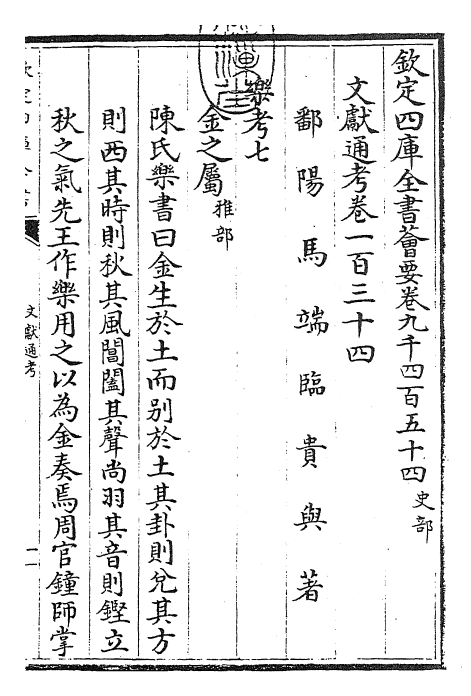 欽定四庫全書薈要卷九千四百五十四史部
文獻通考卷一百三十四
鄱陽馬端臨貴與著
樂考七
金之屬雅部
陳氏樂書曰金生於土而別於土其卦則兌其方
則西其時則秋其風閶闔其聲尚羽其音則鏗立
秋之氣先王作樂用之以為金奏焉周官鐘師掌
文獻通考